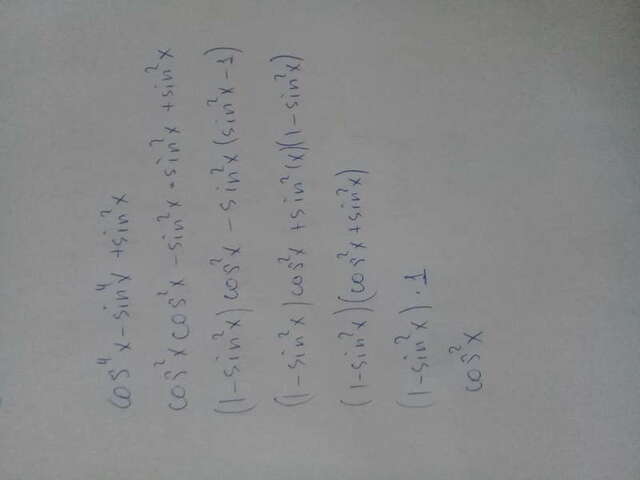 cos⁴x - sin⁴x + sin²x
cos²x cos²x - sin²x · sin²x + sin²x
(1 - sin²x) cos²x - sin²x (sin²x - 1)
(1 - sin²x) cos²x + sin²(x)(1 - sin²x)
(1 - sin²x)(cos²x + sin²x)
(1 - sin²x) · 1
cos²x